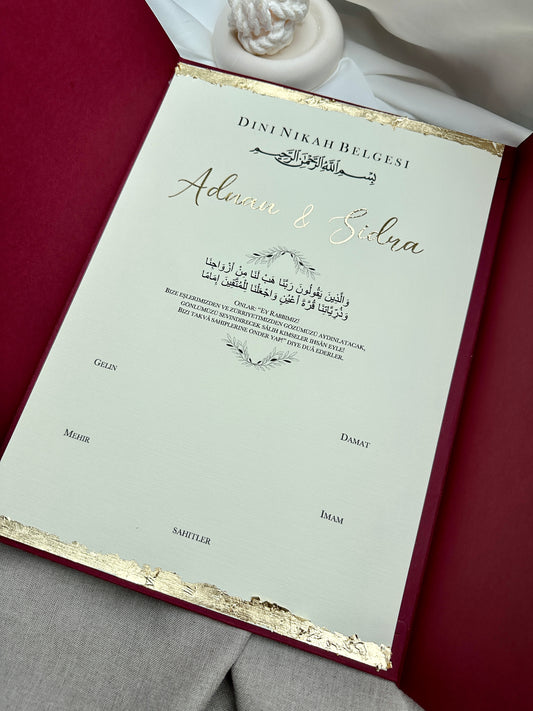 DINI NIKAH BELGESI
بِسْمِ اللَّهِ الرَّحْمَنِ الرَّحِيمِ
Adnan & Sidra
وَالَّذِينَ يَقُولُونَ رَبَّنَا هَبْ لَنَا مِنْ أَزْوَاجِنَا
وَذُرِّيَّاتِنَا قُرَّةَ أَعْيُنٍ وَاجْعَلْنَا لِلْمُتَّقِينَ إِمَامًا
ONLAR: "EY RABBIMIZ!
BIZE EŞLERIMIZDEN VE ZÜRRIYETIMIZDEN GÖZÜMÜZÜ AYDINLATACAK,
GÖNLÜMÜZÜ SEVINDIRECEK SÂLIH KIMSELER IHSÂN EYLE!
BIZI TAKVÂ SAHIPLERINE ÖNDER YAP!" DIYE DUÂ EDERLER.
GELIN
DAMAT
MEHIR
IMAM
SAHITLER